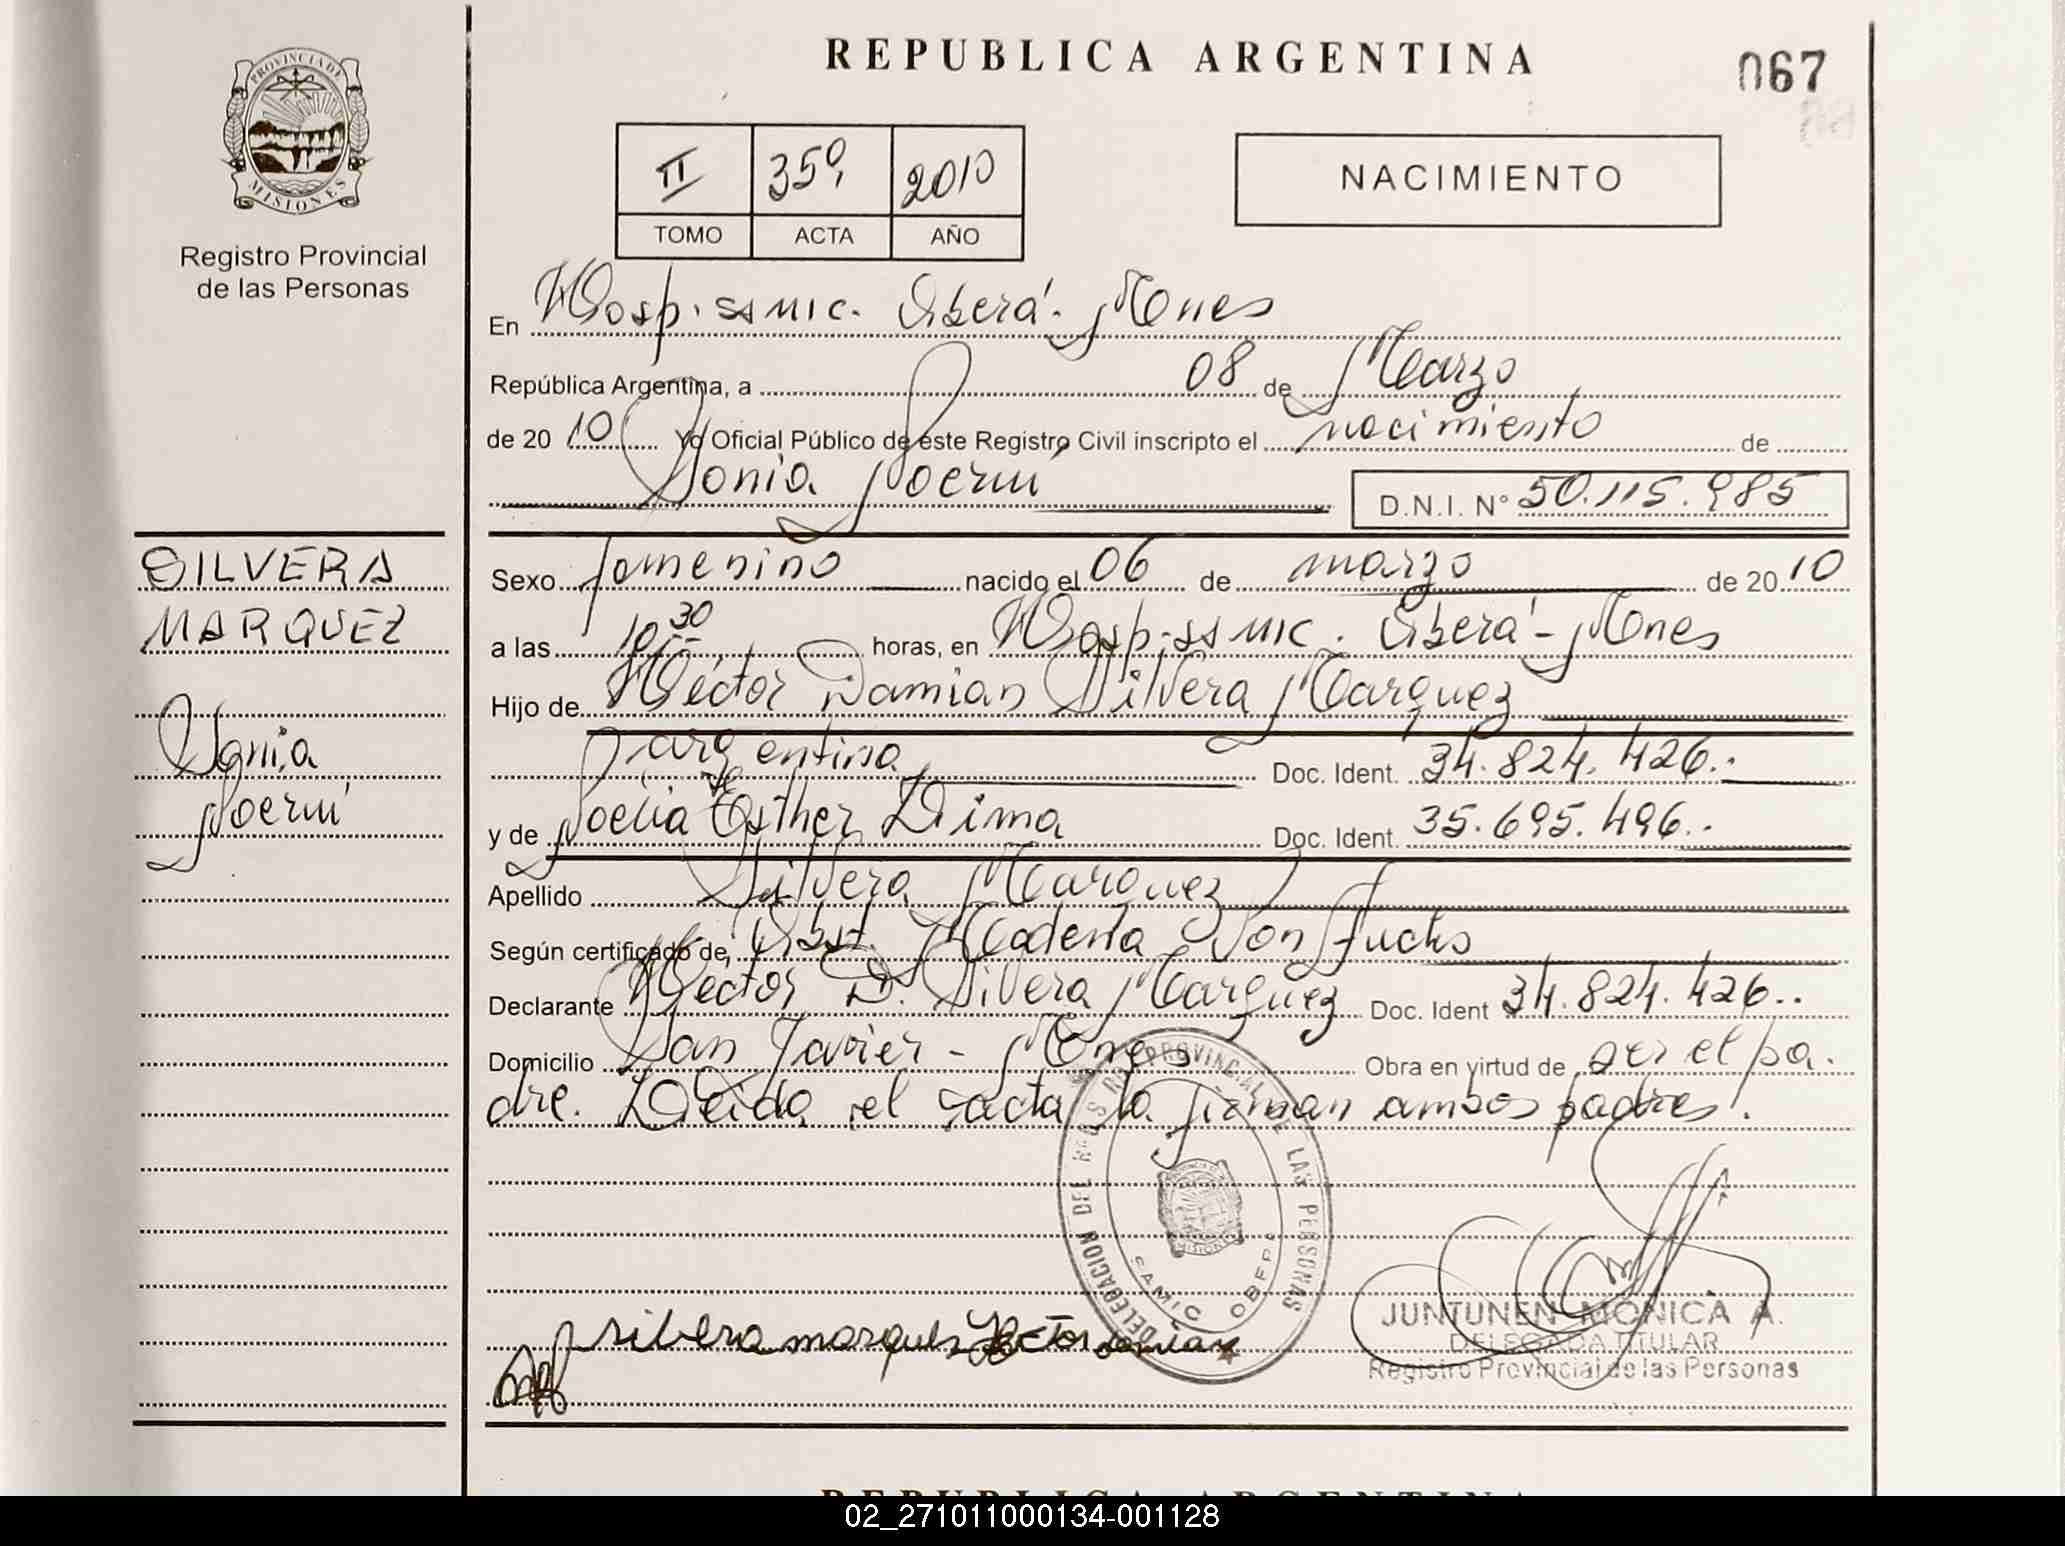 REPUBLICA ARGENTINA
067
PROVINCIA DE
MISIONES
Registro Provincial
de las Personas
II 359 2010
TOMO ACTA AÑO
NACIMIENTO
En Hosp. ssmic. Oberá. Mnes
República Argentina, a 08 de Marzo
de 20 10 Yo Oficial Público de este Registro Civil inscripto el nacimiento de
Sonia Noemí
D.N.I. N° 50.115.985
SILVERA
MARQUEZ
Sonia
Noemí
Sexo femenino nacido el 06 de marzo de 20 10
a las 10:30 horas, en Hosp. ssmic. Oberá - Mnes
Hijo de Héctor Damian Silvera Marquez
argentina Doc. Ident. 34.824.426..
y de Noelia Esther Lima Doc. Ident. 35.695.496..
Apellido Silvera Marquez
Según certificado de, Obst. Von Fuchs
Declarante Héctor D. Silvera Marquez Doc. Ident 34.824.426..
Domicilio San Javier - Mnes Obra en virtud de ser el pa.
dre. Leida el acta la firman ambos padres.
DELEGACION DEL PROVINCIAL DE LAS PERSONAS
SAMIC OBERA
MISIONES
silvera marquez Hector damian
JUNTUNEN MONICA A.
DELEGADA TITULAR
Registro Provincial de las Personas
REPUBLICA ARGENTINA
02_271011000134-001128